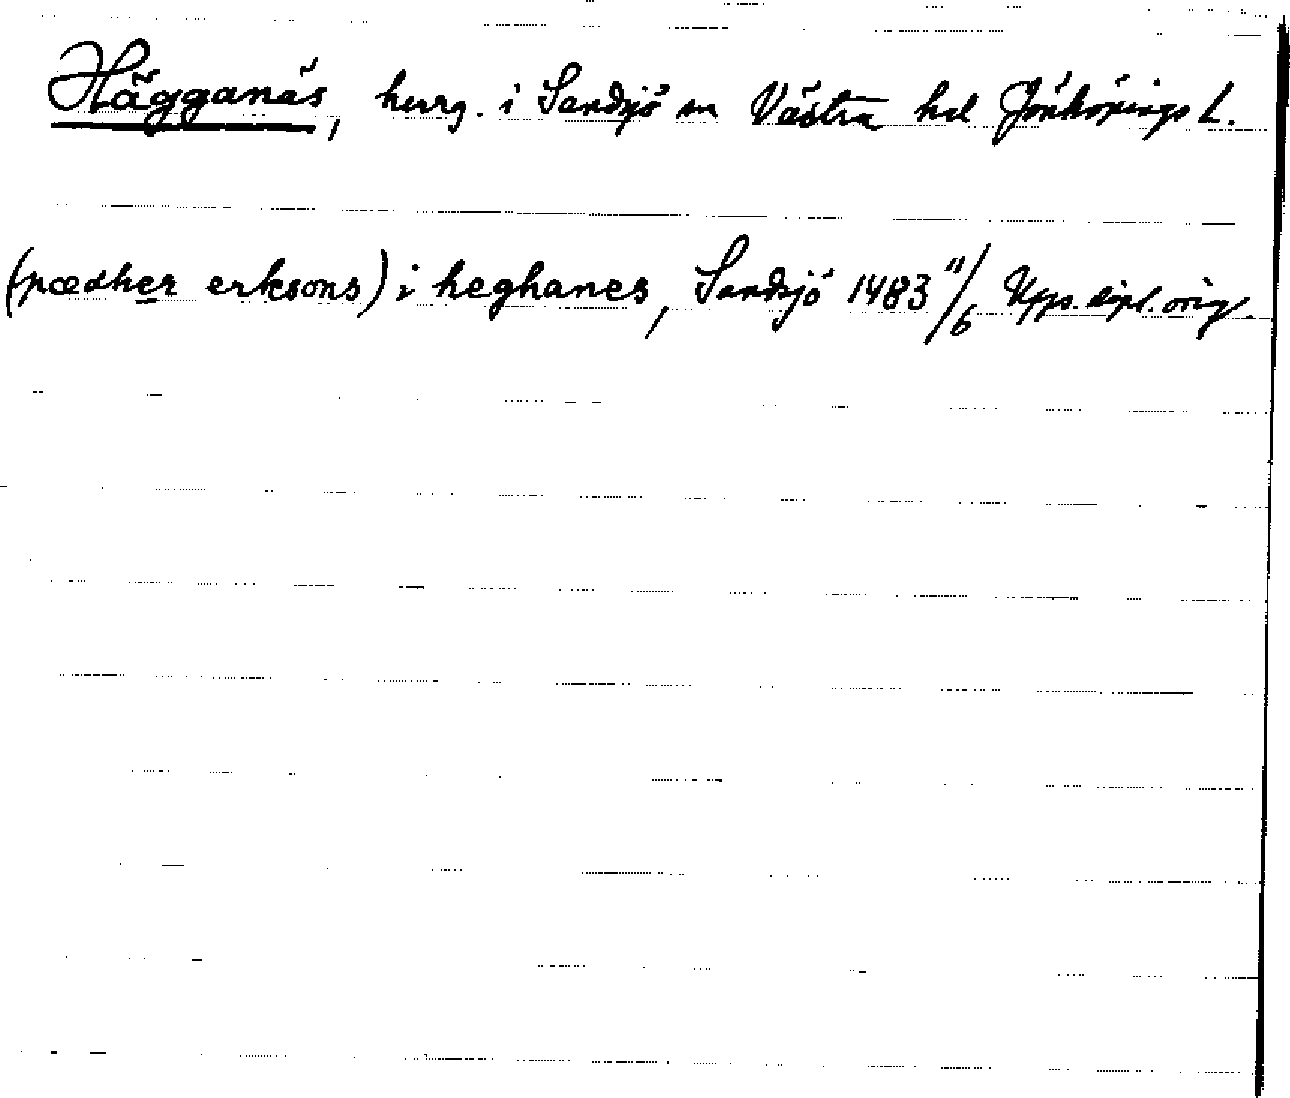 Hägganäs, herrg. i Sandsjö sn Västra hd Jönköpings L.
(pædher erksons) i heghanes, Sandsjö 1483 11/6 Upps. dipl. orig.